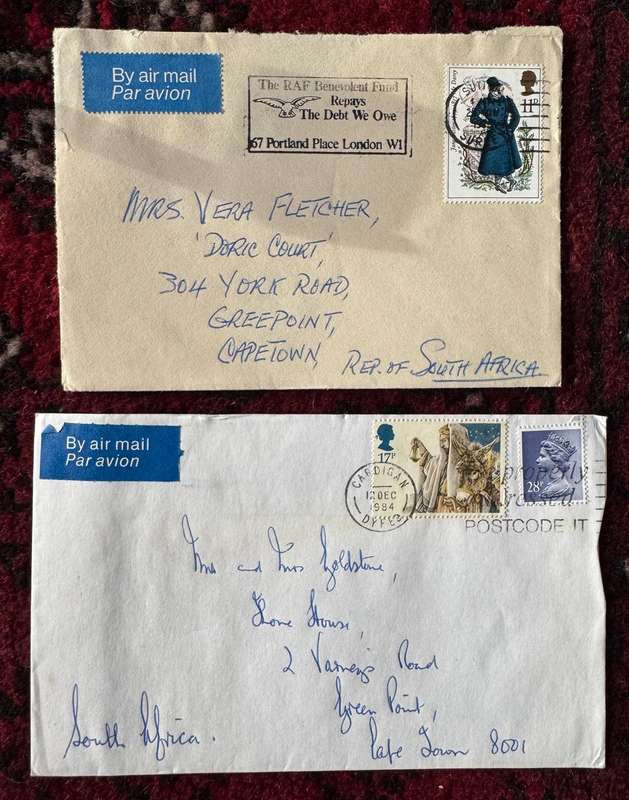 By air mail
Par avion
The RAF Benevolent Fund
Repays
The Debt We Owe
67 Portland Place London W1
11P
SUTTON
MRS. VERA FLETCHER,
'DORIC COURT',
304 YORK ROAD,
GREEPOINT,
CAPETOWN,
REP. OF SOUTH AFRICA.
By air mail
Par avion
17P
28P
CARDIGAN
12 DEC
1984
DYFED
properly
addressed
POSTCODE IT
Mr and Mrs Goldstone,
Shore House,
2 Varney's Road
Green Point,
Cape Town 8001
South Africa.